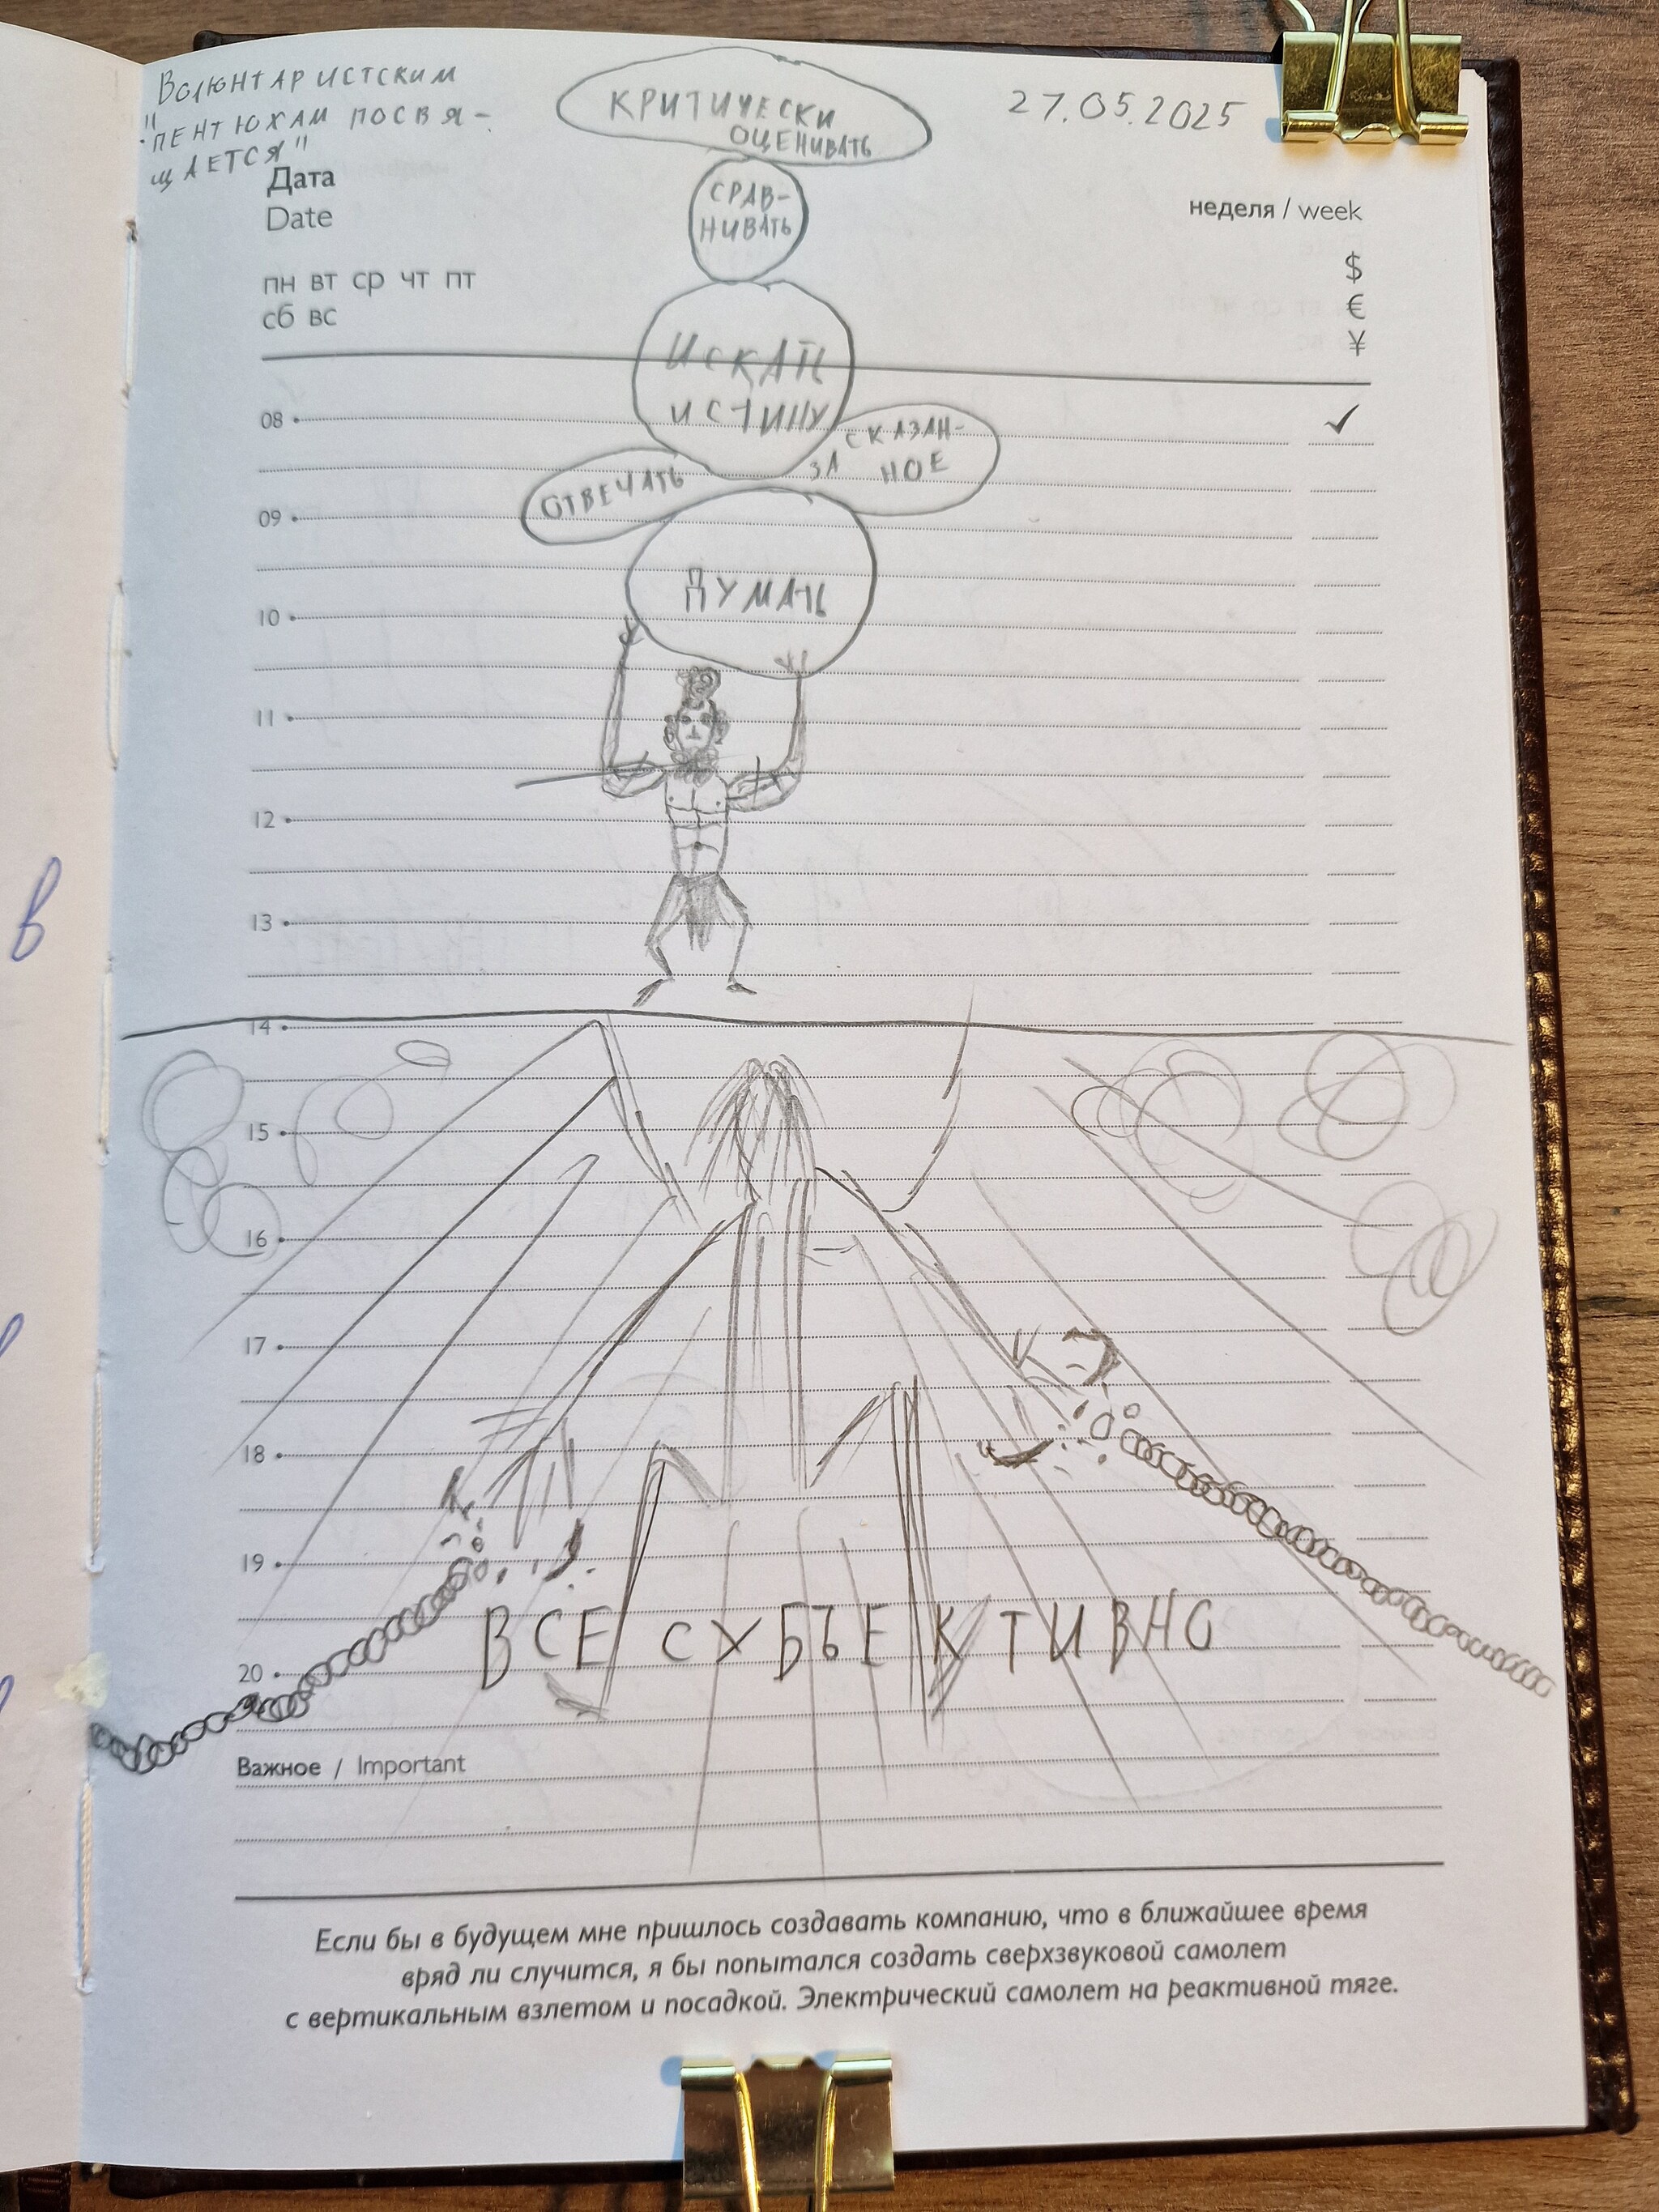 "Волюнтаристским
пентюхам посвя-
щается"
КРИТИЧЕСКИ
ОЦЕНИВАТЬ
27.05.2025
Дата
Date
СРАВ-
НИВАТЬ
неделя / week
пн вт ср чт пт
сб вс
$
€
¥
ИСКАТЬ
ИСТИНУ
08
✓
ОТВЕЧАТЬ
ЗА СКАЗАН-
НОЕ
09
ДУМАТЬ
10
11
12
13
14
15
16
17
18
19
ВСЕ СУБЪЕКТИВНО
20
Важное / Important
Если бы в будущем мне пришлось создавать компанию, что в ближайшее время
вряд ли случится, я бы попытался создать сверхзвуковой самолет
с вертикальным взлетом и посадкой. Электрический самолет на реактивной тяге.
в